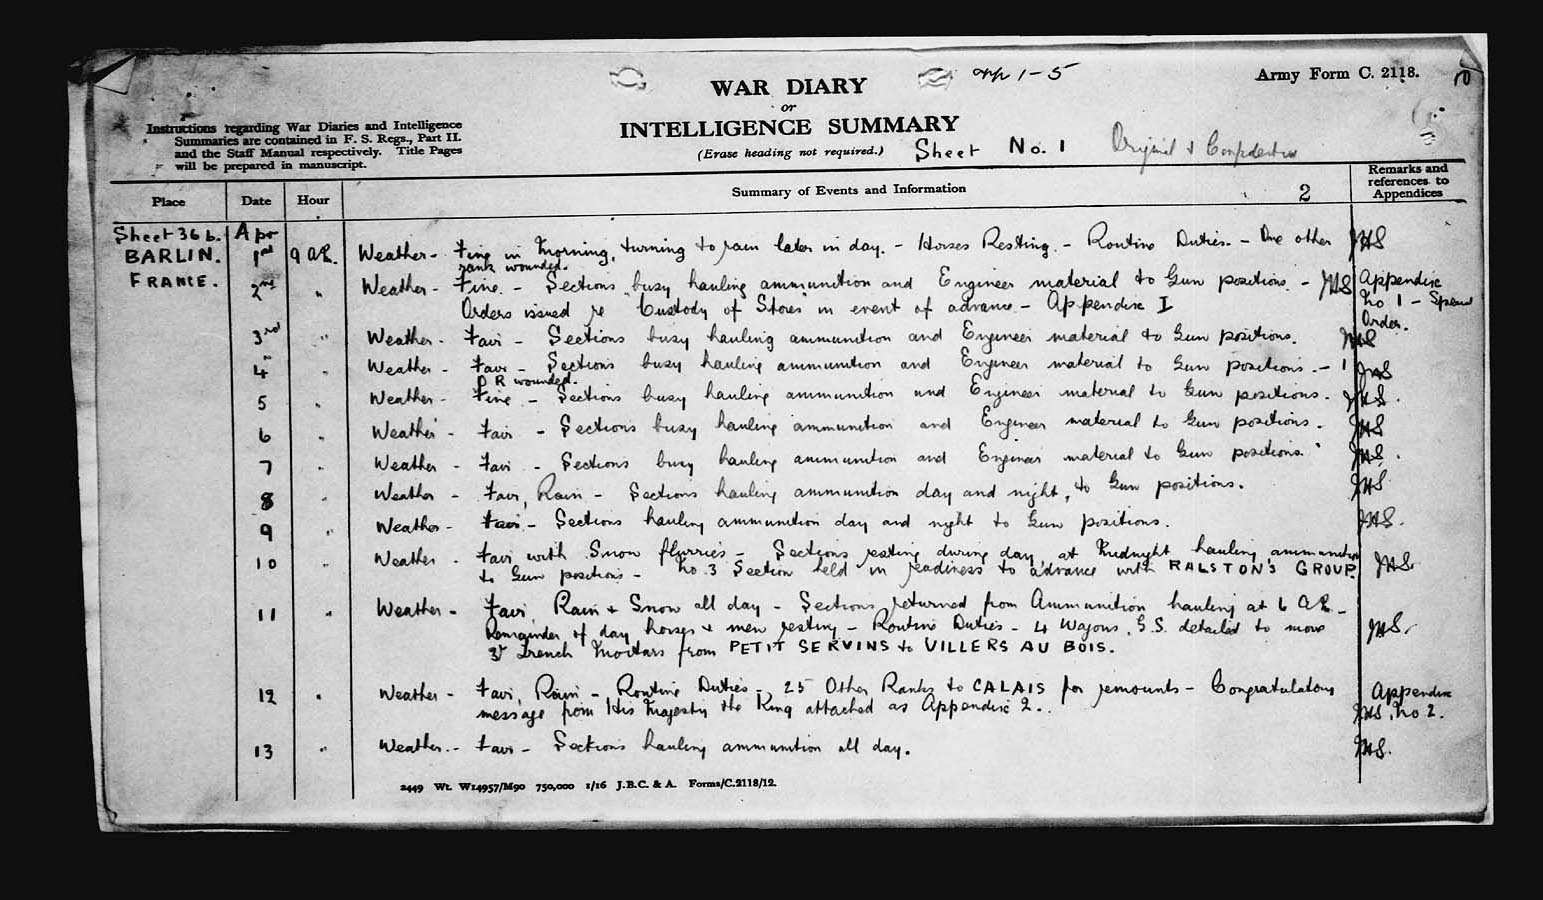 app 1-5
Army Form C. 2118.
10
WAR DIARY
or
INTELLIGENCE SUMMARY
(Erase heading not required.) Sheet No. 1 Original & Confidential
Instructions regarding War Diaries and Intelligence
Summaries are contained in F. S. Regs., Part II.
and the Staff Manual respectively. Title Pages
will be prepared in manuscript.
Place Date Hour Summary of Events and Information 2 Remarks and references to Appendices
Sheet 36 b. Apr
BARLIN. 1st 9 a.m. Weather - Fine in Morning, turning to rain later in day. - Horses Resting. - Routine Duties. - One other JHS
rank wounded.
FRANCE. 2nd " Weather - Fine. - Sections busy hauling ammunition and Engineer material to Gun positions. - JHS Appendix
Orders issued re "Custody of Stores" in event of advance - Appendix I No 1 - Special
Order.
3rd " Weather - Fair - Sections busy hauling ammunition and Engineer material to Gun positions. JHS
4 " Weather - Fair - Sections busy hauling ammunition and Engineer material to Gun positions. - 1 JHS
O R wounded.
5 " Weather - Fine - Sections busy hauling ammunition and Engineer material to Gun positions. JHS.
6 " Weather - Fair - Sections busy hauling ammunition and Engineer material to Gun positions. JHS
7 " Weather - Fair - Sections busy hauling ammunition and Engineer material to Gun positions. JHS.
8 " Weather - Fair, Rain - Sections hauling ammunition day and night, to Gun positions. JHS
9 " Weather - Fair - Sections hauling ammunition day and night to Gun positions. JHS.
10 " Weather - Fair with Snow flurries - Sections resting during day, at Midnight hauling ammunition
to Gun positions - No. 3 Section held in readiness to advance with RALSTON'S GROUP. JHS.
11 " Weather - Fair, Rain & Snow all day - Sections returned from Ammunition hauling at 6 a.m. -
Remainder of day horses & men resting - Routine Duties - 4 Wagons, G.S. detailed to move JHS.
3" Trench Mortars from PETIT SERVINS to VILLERS AU BOIS.
12 " Weather - Fair, Rain - Routine Duties - 25 Other Ranks to CALAIS for remounts - Congratulatory Appendix
message from His Majesty the King attached as Appendix 2. JHS. No 2.
13 " Weather - Fair - Sections hauling ammunition all day. JHS.
2449 Wt. W14957/M90 750,000 1/16 J.B.C. & A. Forms/C.2118/12.